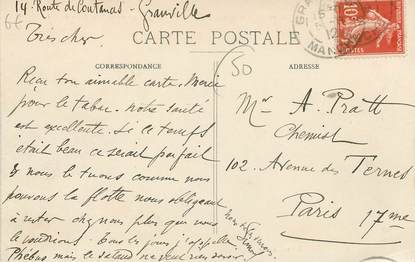 14 Route de Coutances - Granville
Très cher
CARTE POSTALE
CORRESPONDANCE
ADRESSE
50
Reçu ton aimable carte. Merci
pour le tabac. Notre santé
est excellente. Si le temps
était beau ce serait parfait
Nous le tuons comme nous
pouvons la flotte nous obligeant
à rester chez nous plus que nous
le voudrions. Tous les jours j'appelle
Phébus mais le salaud ne veut rien savoir.
Mr A. Pratt
Chemist
102, Avenue des Ternes
Paris 17me
GRANVILLE
MANCHE
10